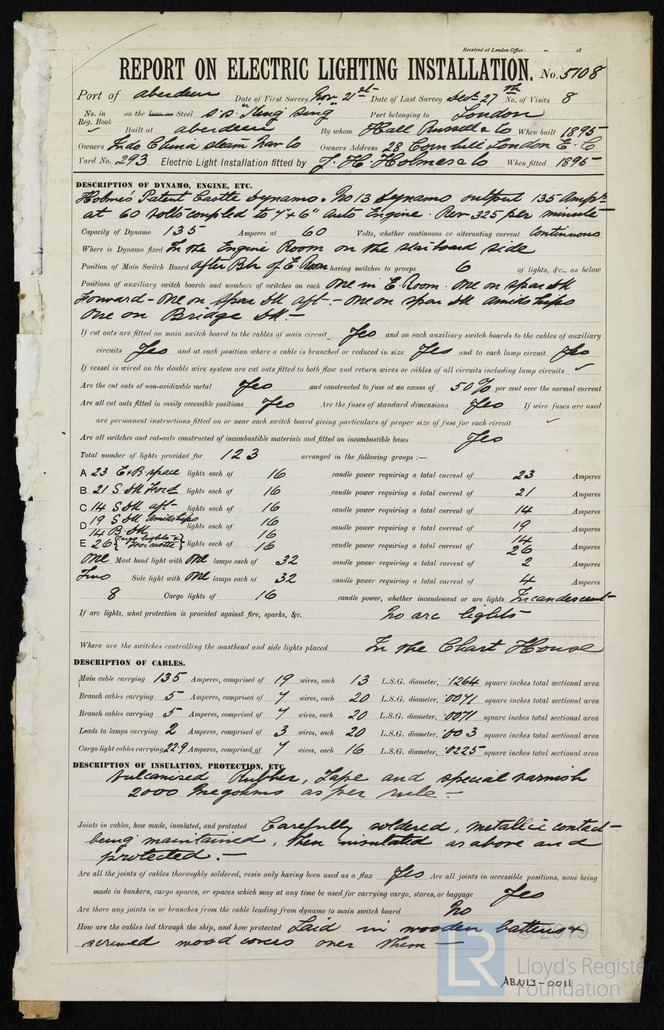 Received at London Office 18
REPORT ON ELECTRIC LIGHTING INSTALLATION. No. 5108
Port of Aberdeen Date of First Survey Nov. 21st Date of Last Survey Decr 27th No. of Visits 8
No. in Reg. Book on the Iron or Steel S.S. "Ting Sang" Port belonging to London
Built at Aberdeen By whom Hall Russell & Co When built 1895
Owners Indo China Steam Nav Co Owners Address 28 Cornhill London E.C
Yard No. 293 Electric Light Installation fitted by J. H. Holmes & Co When fitted 1895
DESCRIPTION OF DYNAMO, ENGINE, ETC.
Holmes' Patent Castle Dynamo. No 13 Dynamo output 135 Amps
at 60 volts coupled to 7 & 6" Auto Engine. Rev 325 per minute
Capacity of Dynamo 135 Amperes at 60 Volts, whether continuous or alternating current Continuous
Where is Dynamo fixed In the Engine Room on the starboard side
Position of Main Switch Board after Bh of E. Room having switches to groups 6 of lights, &c., as below
Positions of auxiliary switch boards and numbers of switches on each One in E. Room. One on spar dk
Forward - One on spar dk aft. - One on spar dk amidships
One on Bridge dk. -
If cut outs are fitted on main switch board to the cables of main circuit Yes and on each auxiliary switch boards to the cables of auxiliary
circuits Yes and at each position where a cable is branched or reduced in size Yes and to each lamp circuit Yes
If vessel is wired on the double wire system are cut outs fitted to both flow and return wires or cables of all circuits including lamp circuits ✓
Are the cut outs of non-oxidizable metal Yes and constructed to fuse at an excess of 50% per cent over the normal current
Are all cut outs fitted in easily accessible positions Yes Are the fuses of standard dimensions Yes If wire fuses are used
are permanent instructions fitted on or near each switch board giving particulars of proper size of fuse for each circuit ✓
Are all switches and cut-outs constructed of incombustible materials and fitted on incombustible bases Yes
Total number of lights provided for 123 arranged in the following groups :—
A 23 E & B space lights each of 16 candle power requiring a total current of 23 Amperes
B 21 S dk Ford lights each of 16 candle power requiring a total current of 21 Amperes
C 14 S dk aft lights each of 16 candle power requiring a total current of 14 Amperes
D 19 S dk amidships lights each of 16 candle power requiring a total current of 19 Amperes
14 B dk 16 14
E 26 {Cargo lights & Forecastle} lights each of 16 candle power requiring a total current of 26 Amperes
One Mast head light with One lamps each of 32 candle power requiring a total current of 2 Amperes
Two Side light with One lamps each of 32 candle power requiring a total current of 4 Amperes
8 Cargo lights of 16 candle power, whether incandescent or arc lights Incandescent
If arc lights, what protection is provided against fire, sparks, &c. No arc lights
Where are the switches controlling the masthead and side lights placed In the Chart House
DESCRIPTION OF CABLES.
Main cable carrying 135 Amperes, comprised of 19 wires, each 13 L.S.G. diameter, .1264 square inches total sectional area
Branch cables carrying 5 Amperes, comprised of 7 wires, each 20 L.S.G. diameter, .0071 square inches total sectional area
Branch cables carrying 5 Amperes, comprised of 7 wires, each 20 L.S.G. diameter, .0071 square inches total sectional area
Leads to lamps carrying 2 Amperes, comprised of 3 wires, each 20 L.S.G. diameter, .003 square inches total sectional area
Cargo light cables carrying 22.9 Amperes, comprised of 7 wires, each 16 L.S.G. diameter, .0225 square inches total sectional area
DESCRIPTION OF INSULATION, PROTECTION, ETC.
Vulcanised Rubber, Tape and special varnish
2000 megohms as per rule -
Joints in cables, how made, insulated, and protected Carefully soldered, metallic contact
being maintained, then insulated as above and
protected. -
Are all the joints of cables thoroughly soldered, resin only having been used as a flux Yes Are all joints in accessible positions, none being
made in bunkers, cargo spaces, or spaces which may at any time be used for carrying cargo, stores, or baggage Yes
Are there any joints in or branches from the cable leading from dynamo to main switch board No
How are the cables led through the ship, and how protected Laid in wooden battens &
screwed wood covers over them -
© 2019
LR Lloyd's Register
Foundation
ABN13-0011